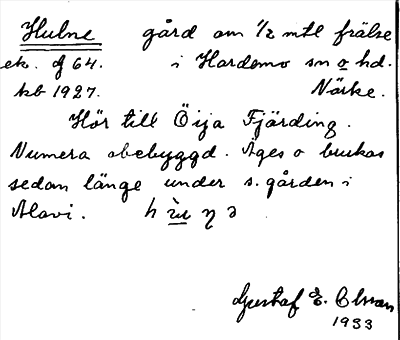 Hulne gård om 1/2 mtl frälse
ek. bl 64. i Hardemo sn o hd.
kb 1927. Närke.
Hör till Öija Fjärding.
Numera obebyggd. Äges o brukas
sedan länge under s. gården i
Alavi. h
Gustaf E. Olsson
1933